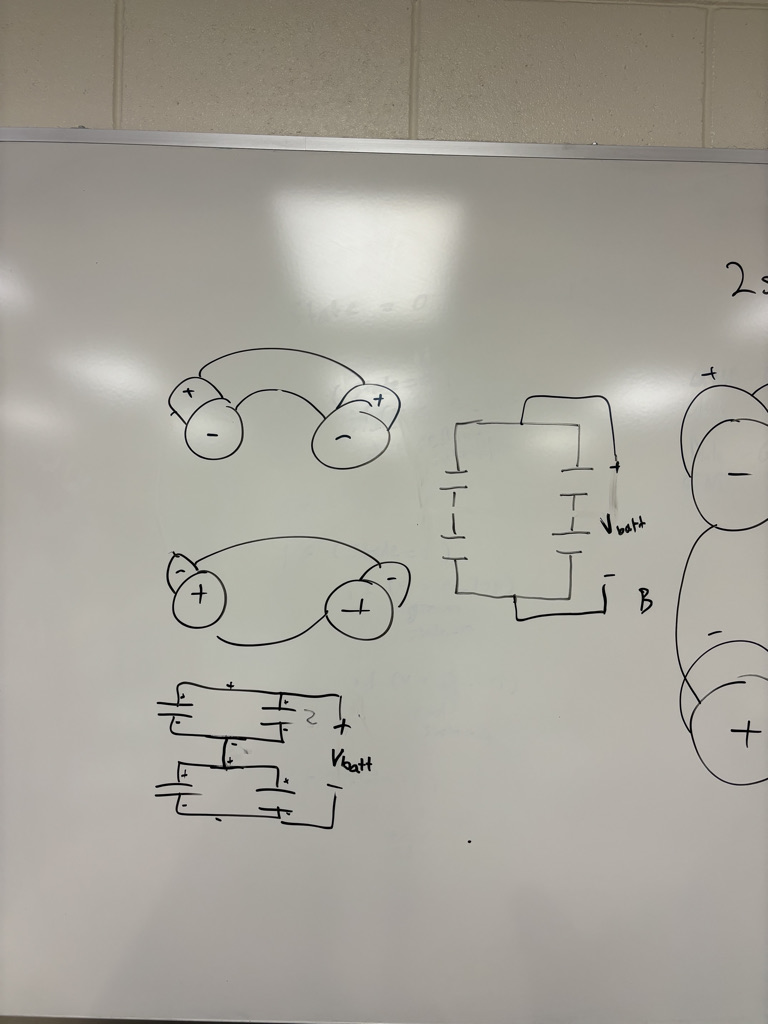 2s
+
+ +
- -
-
+
V_batt
-
B
- -
+ +
-
+
+
+ +
2
- -
+
-
+
V_batt
+ +
-
- -
-